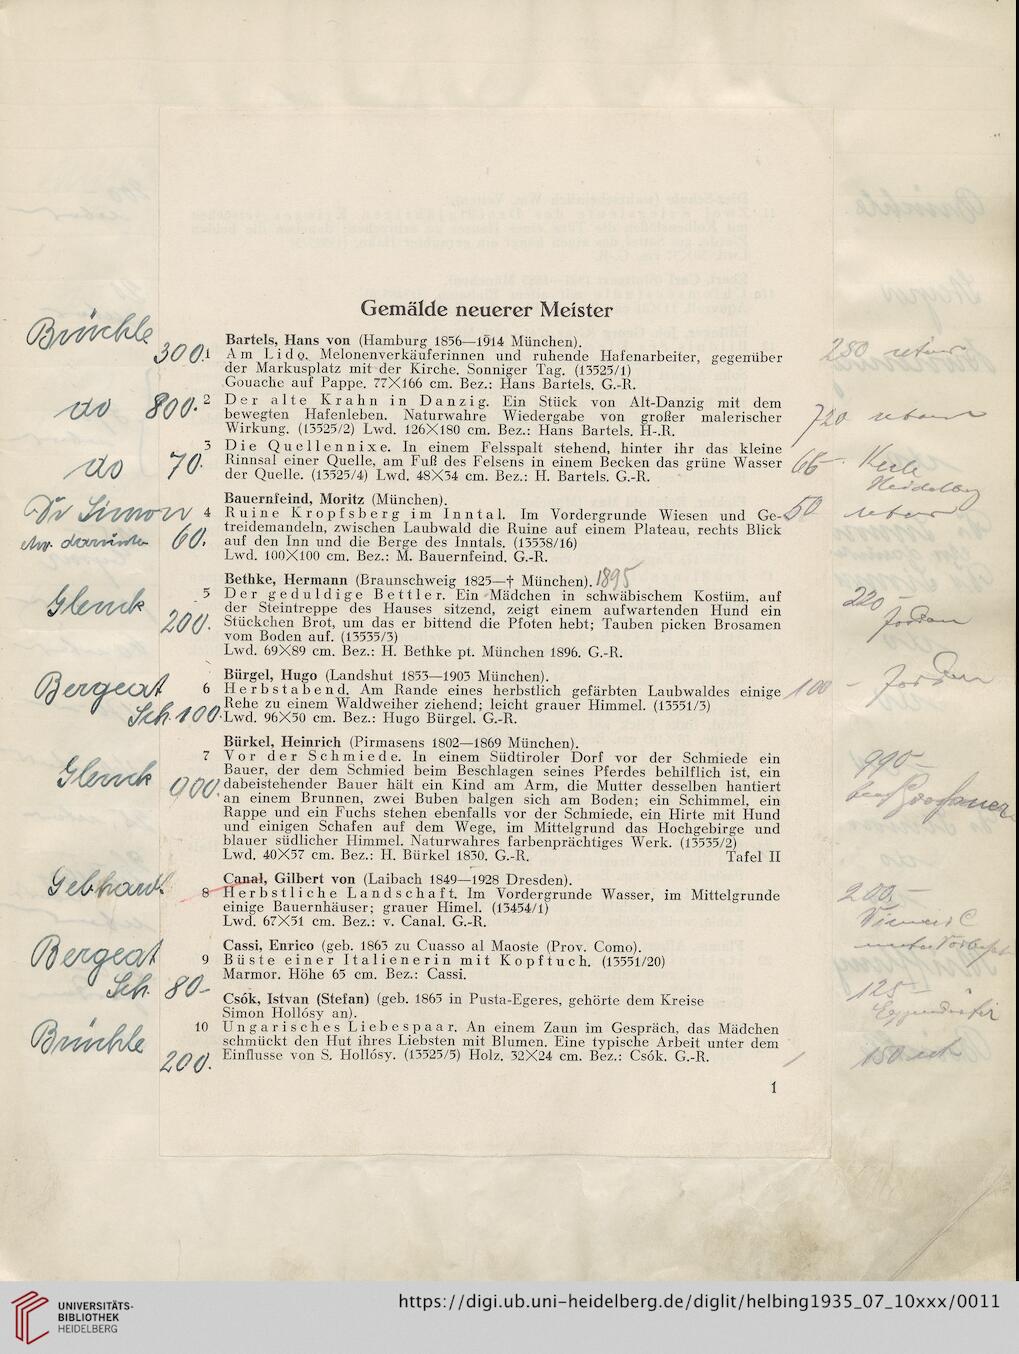 Gemälde neuerer Meister
Brüchle
300.
Bartels, Hans von (Hamburg 1856—1914 München).
1 Am Lido. Melonenverkäuferinnen und ruhende Hafenarbeiter, gegenüber
der Markusplatz mit der Kirche. Sonniger Tag. (13525/1)
Gouache auf Pappe. 77X166 cm. Bez.: Hans Bartels. G.-R.
250 retour
do 800.
2 Der alte Krahn in Danzig. Ein Stück von Alt-Danzig mit dem
bewegten Hafenleben. Naturwahre Wiedergabe von großer malerischer
Wirkung. (13525/2) Lwd. 126X180 cm. Bez.: Hans Bartels. H-.R.
720 retour
do 70.
3 Die Quellennixe. In einem Felsspalt stehend, hinter ihr das kleine
Rinnsal einer Quelle, am Fuß des Felsens in einem Becken das grüne Wasser
der Quelle. (13525/4) Lwd. 48X34 cm. Bez.: H. Bartels. G.-R.
Heidelberg
Bauernfeind, Moritz (München).
Dr Simon
60.
4 Ruine Kropfsberg im Inntal. Im Vordergrunde Wiesen und Ge-
treidemandeln, zwischen Laubwald die Ruine auf einem Plateau, rechts Blick
auf den Inn und die Berge des Inntals. (13538/16)
Lwd. 100X100 cm. Bez.: M. Bauernfeind. G.-R.
50 retour
Bethke, Hermann (Braunschweig 1825—† München). 1895
Glenk
200.
5 Der geduldige Bettler. Ein Mädchen in schwäbischem Kostüm, auf
der Steintreppe des Hauses sitzend, zeigt einem aufwartenden Hund ein
Stückchen Brot, um das er bittend die Pfoten hebt; Tauben picken Brosamen
vom Boden auf. (13535/3)
Lwd. 69X89 cm. Bez.: H. Bethke pt. München 1896. G.-R.
220 –
Jordan
Bürgel, Hugo (Landshut 1853—1903 München).
Bergeat
Sch. 100.
6 Herbstabend. Am Rande eines herbstlich gefärbten Laubwaldes einige
Rehe zu einem Waldweiher ziehend; leicht grauer Himmel. (13551/3)
Lwd. 96X50 cm. Bez.: Hugo Bürgel. G.-R.
100 – Jordan
Bürkel, Heinrich (Pirmasens 1802—1869 München).
Glenk
900.
7 Vor der Schmiede. In einem Südtiroler Dorf vor der Schmiede ein
Bauer, der dem Schmied beim Beschlagen seines Pferdes behilflich ist, ein
dabeistehender Bauer hält ein Kind am Arm, die Mutter desselben hantiert
an einem Brunnen, zwei Buben balgen sich am Boden; ein Schimmel, ein
Rappe und ein Fuchs stehen ebenfalls vor der Schmiede, ein Hirte mit Hund
und einigen Schafen auf dem Wege, im Mittelgrund das Hochgebirge und
blauer südlicher Himmel. Naturwahres farbenprächtiges Werk. (13535/2)
Lwd. 40X57 cm. Bez.: H. Bürkel 1830. G.-R. Tafel II
990 –
Canal, Gilbert von (Laibach 1849—1928 Dresden).
Gebhardt
8 Herbstliche Landschaft. Im Vordergrunde Wasser, im Mittelgrunde
einige Bauernhäuser; grauer Himel. (13454/1)
Lwd. 67X51 cm. Bez.: v. Canal. G.-R.
200. –
Cassi, Enrico (geb. 1863 zu Cuasso al Maoste (Prov. Como).
Bergeat
Sch. 80–
9 Büste einer Italienerin mit Kopftuch. (13551/20)
Marmor. Höhe 63 cm. Bez.: Cassi.
125 –
Csók, Istvan (Stefan) (geb. 1865 in Pusta-Egeres, gehörte dem Kreise
Simon Hollósy an).
Brüchle
200.
10 Ungarisches Liebespaar. An einem Zaun im Gespräch, das Mädchen
schmückt den Hut ihres Liebsten mit Blumen. Eine typische Arbeit unter dem
Einflusse von S. Hollósy. (13525/5) Holz. 32X24 cm. Bez.: Csók. G.-R.
150
1
UNIVERSITÄTS-
BIBLIOTHEK
HEIDELBERG
https://digi.ub.uni-heidelberg.de/diglit/helbing1935_07_10xxx/0011